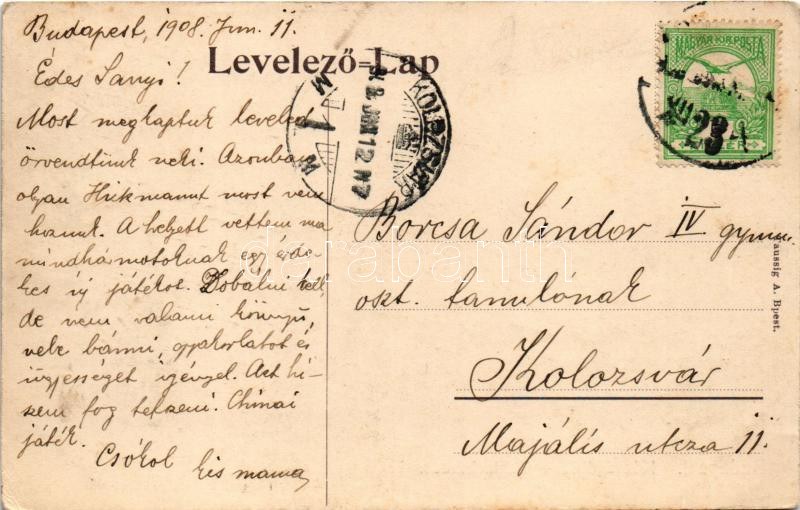 Budapest, 1908. Jun. 11.
Levelező=Lap
Édes Sanyi!
Most megkaptuk leveled
örvendtünk neki. Azonban
olyan Hickmannt most nem
hozunk. A helyett vettem ma
mindhármotoknak egy érde-
kes új játékot. Dobálni kell
de nem valami könnyű
vele bánni, gyakorlatot és
ügyességet igényel. Azt hi-
szem fog tetszeni. Chinai
játék.
Csókol
kis mama
MAGYAR KIR. POSTA
KOLOZSVÁR
Borcsa Sándor IV gymn.
oszt. tanulónak
Kolozsvár
Majális utcza 11.
Taussig A. Bpest.
darabanth